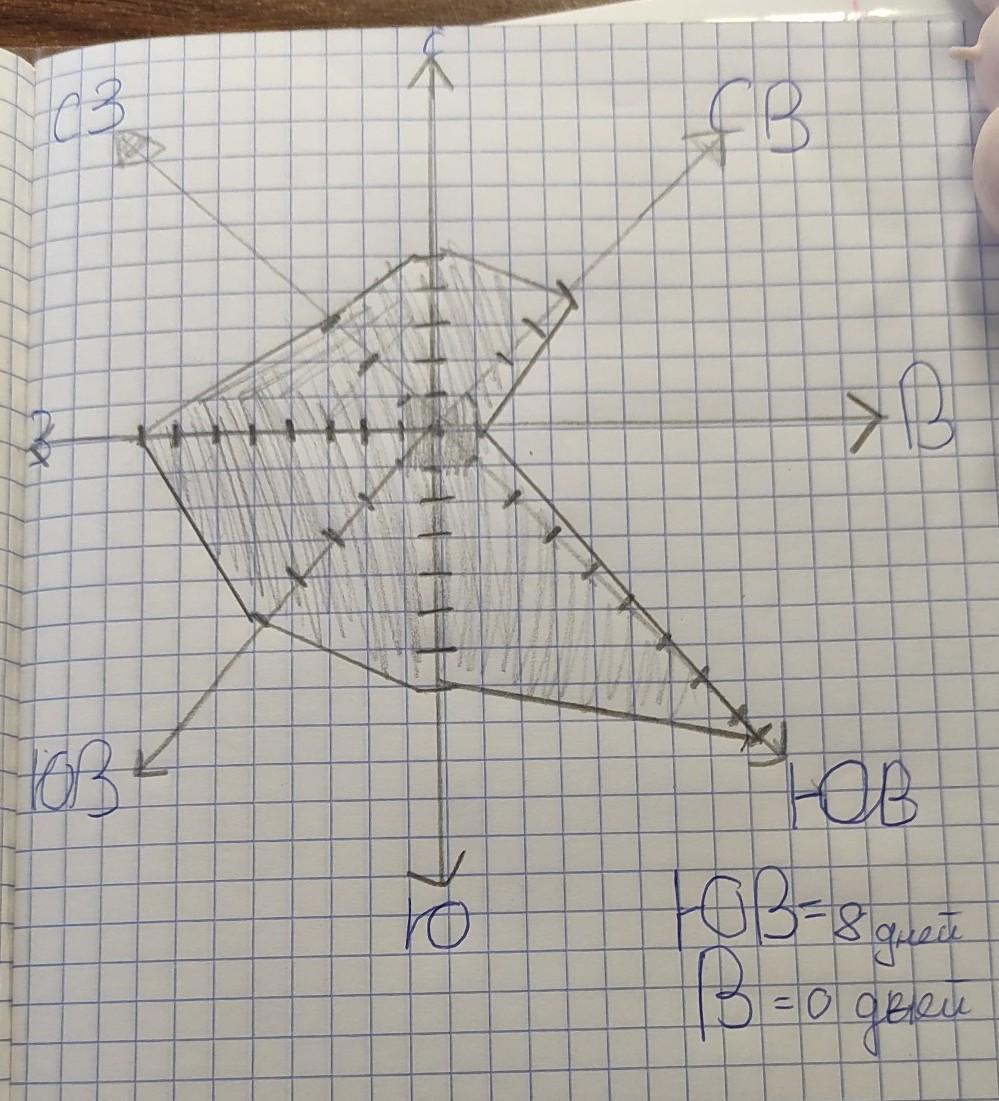 С
СЗ
СВ
З
В
ЮВ
ЮВ
Ю
ЮВ = 8 дней
В = 0 дней